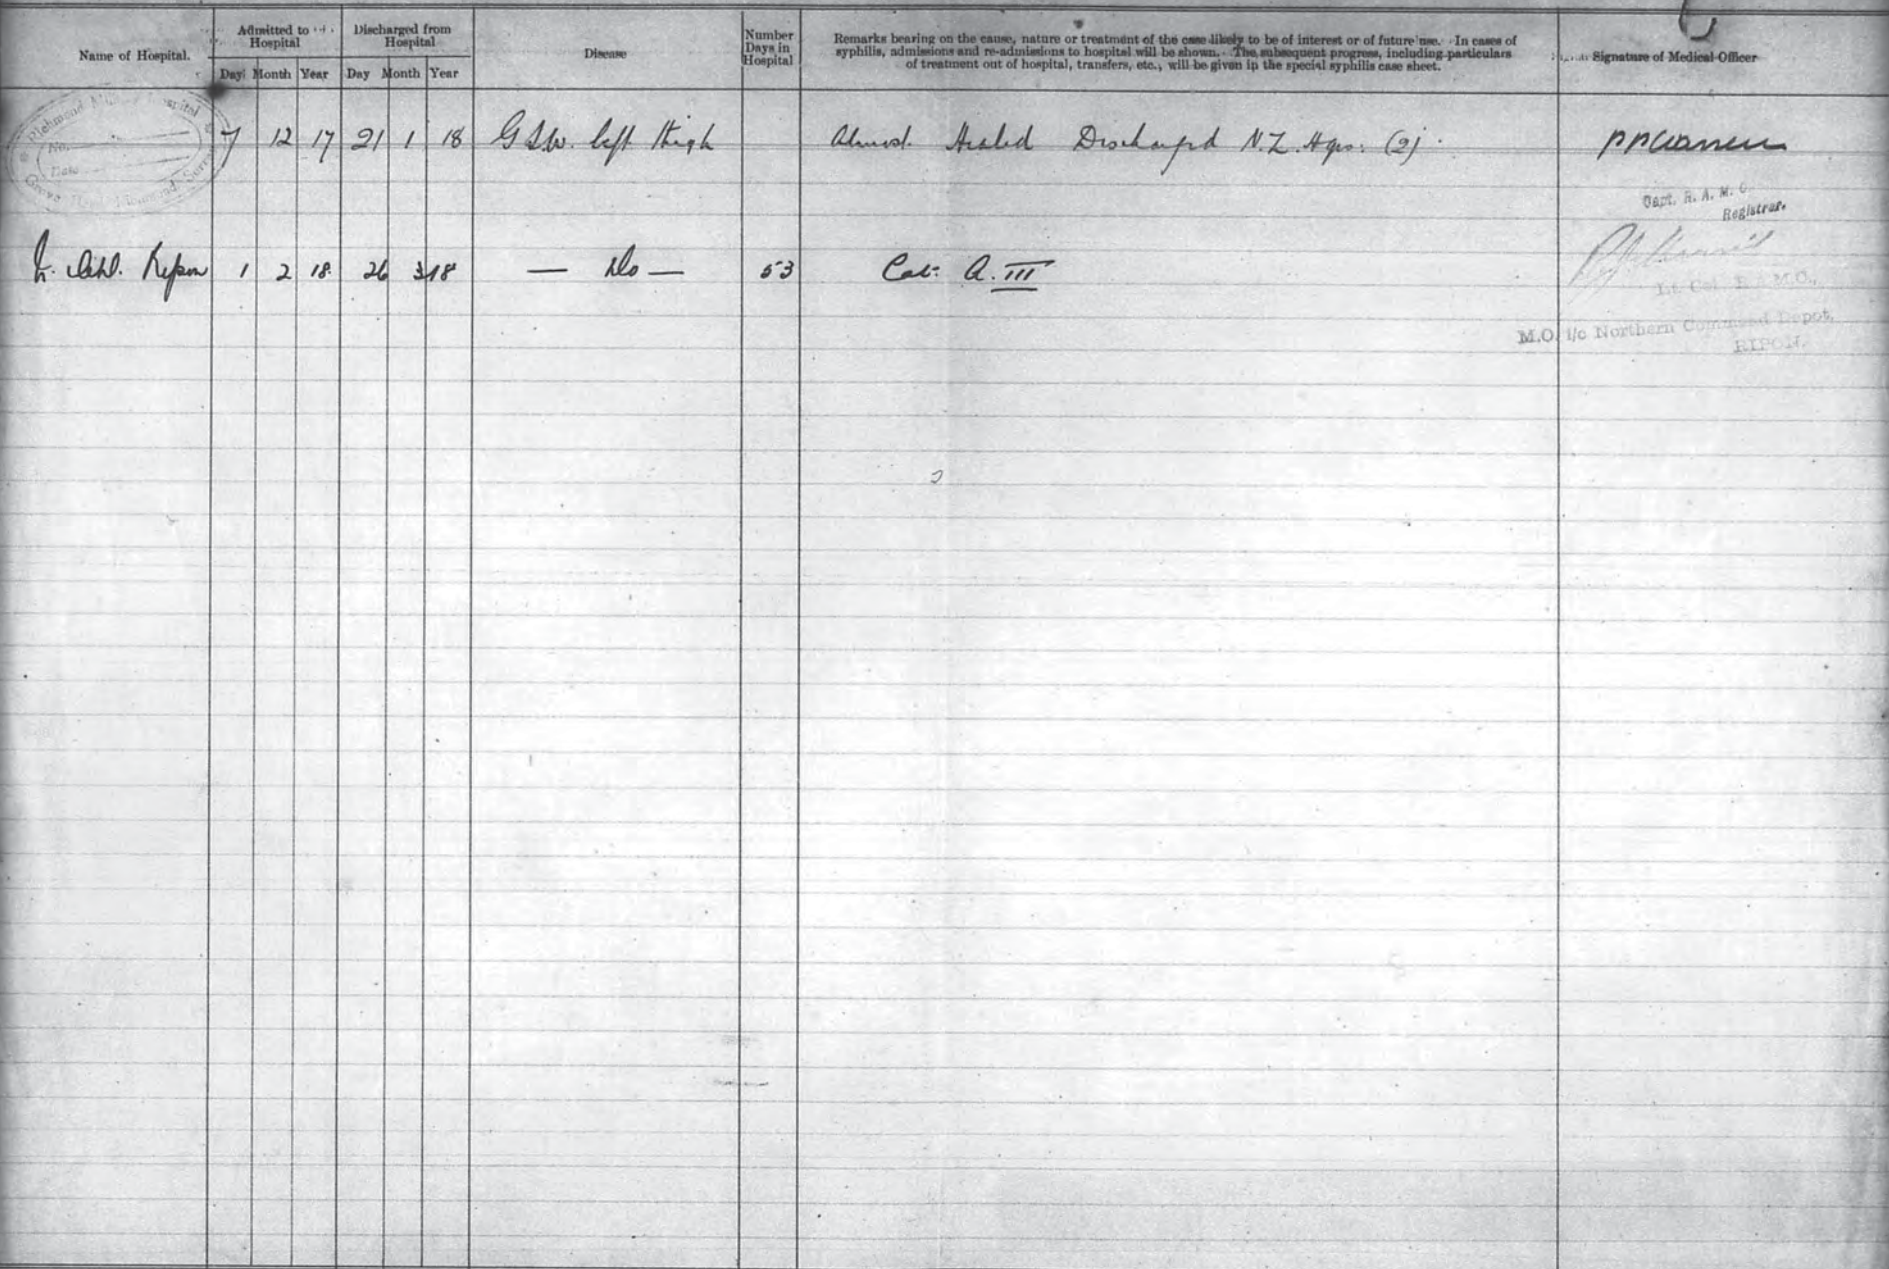 Name of Hospital.
Admitted to Hospital
Discharged from Hospital
Disease
Number Days in Hospital
Remarks bearing on the cause, nature or treatment of the case likely to be of interest or of future use. In cases of
syphilis, admissions and re-admissions to hospital will be shown. The subsequent progress, including particulars
of treatment out of hospital, transfers, etc., will be given in the special syphilis case sheet.
Signature of Medical Officer
Day Month Year Day Month Year
Richmond Military Hospital
No.
Date
Grove Road, Richmond, Surrey
7 12 17 21 1 18 G.S.W. left thigh Almost Healed Discharged N.Z. Hqrs. (2).
Capt. R. A. M. C.
Registrar.
Ripon 1 2 18 26 3 18 — Do — 53 Cat: A. III
Lt. Col. R.A.M.C.,
M.O. i/c Northern Command Depot,
RIPON.